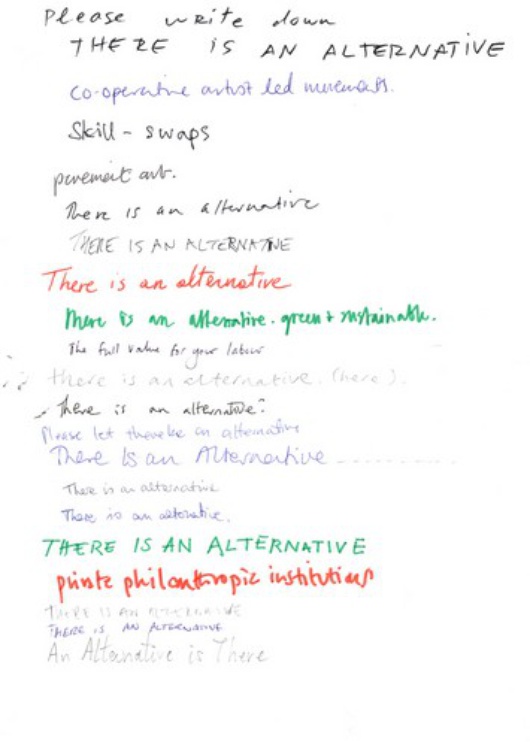 Please write down
THERE IS AN ALTERNATIVE
co-operative artist led movements.
Skill-swaps
pavement art.
There is an alternative
THERE IS AN ALTERNATIVE
There is an alternative
There is an alternative. green + sustainable.
The full value for your labour
there is an alternative. (here).
There is an alternative?
Please let there be an alternative
There Is an Alternative ..............
There is an alternative
There is an alternative.
THERE IS AN ALTERNATIVE
private philanthropic institutions
THERE IS AN ALTERNATIVE
THERE IS AN ALTERNATIVE
An Alternative is There